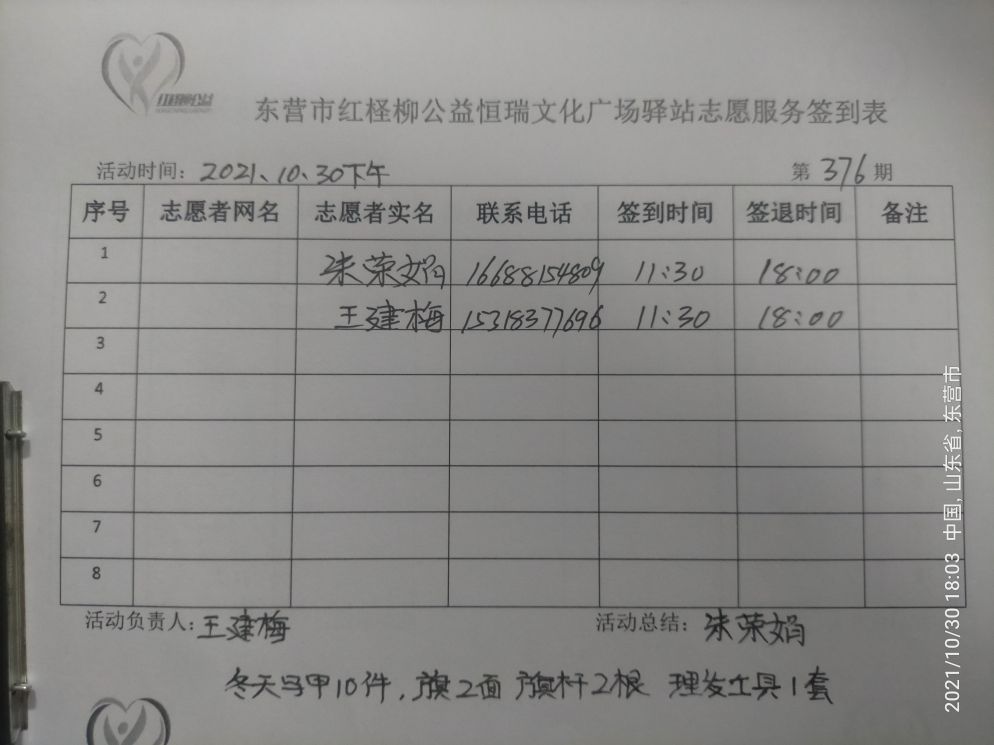 红柽柳公益
东营市红柽柳公益恒瑞文化广场驿站志愿服务签到表
活动时间：2021、10、30下午 第 376 期
序号 志愿者网名 志愿者实名 联系电话 签到时间 签退时间 备注
1 朱荣娟 16688154809 11:30 18:00
2 王建梅 15318377696 11:30 18:00
3
4
5
6
7
8
活动负责人：王建梅 活动总结：朱荣娟
冬天马甲10件，旗2面 旗杆2根 理发工具1套
2021/10/30 18:03 中国, 山东省, 东营市